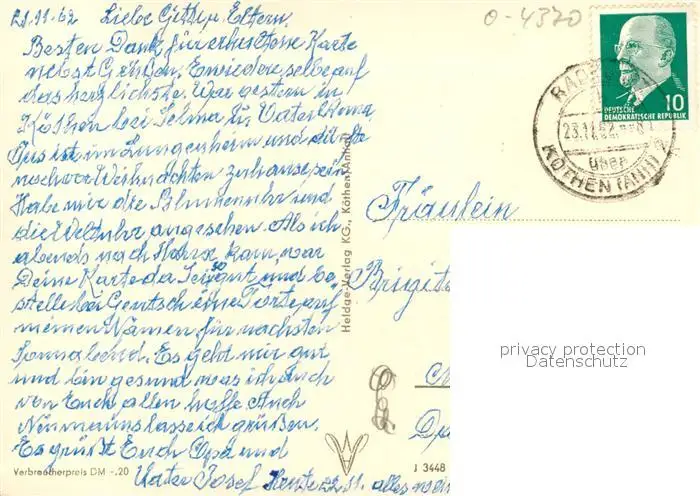 21.11.62 Liebe Gitti u. Eltern.
Besten Dank, für erhaltene Karte
nebst Grüßen. Erwiedere selbe auf
das herzlichste. War gestern in
Köthen bei Selma u. Vater
ist im Lungenheim und
noch vor Weihnachten zuhause sein
Habe mir die Blumenuhr und
die Weltuhr angesehen. Als ich
abends nach Hause kam, war
Deine Karte da. Sei so gut und be
stelle bei Gentsch eine Torte auf
meinen Namen, für nächsten
Sonnabend. Es geht mir gut
und bin gesund was ich auch
von Euch allen hoffe. Auch
Neumanns lasse ich grüßen.
Es grüßt Euch Opa und
Vater Josef Heute 22.11. alles
Verbraucherpreis DM -.20
Heldge-Verlag KG., Köthen/Anhalt
J 3448
0-4370
DEUTSCHE
DEMOKRATISCHE REPUBLIK
10
23.11.62
über
KÖTHEN (ANH)
Fräulein
Brigit
privacy protection
Datenschutz